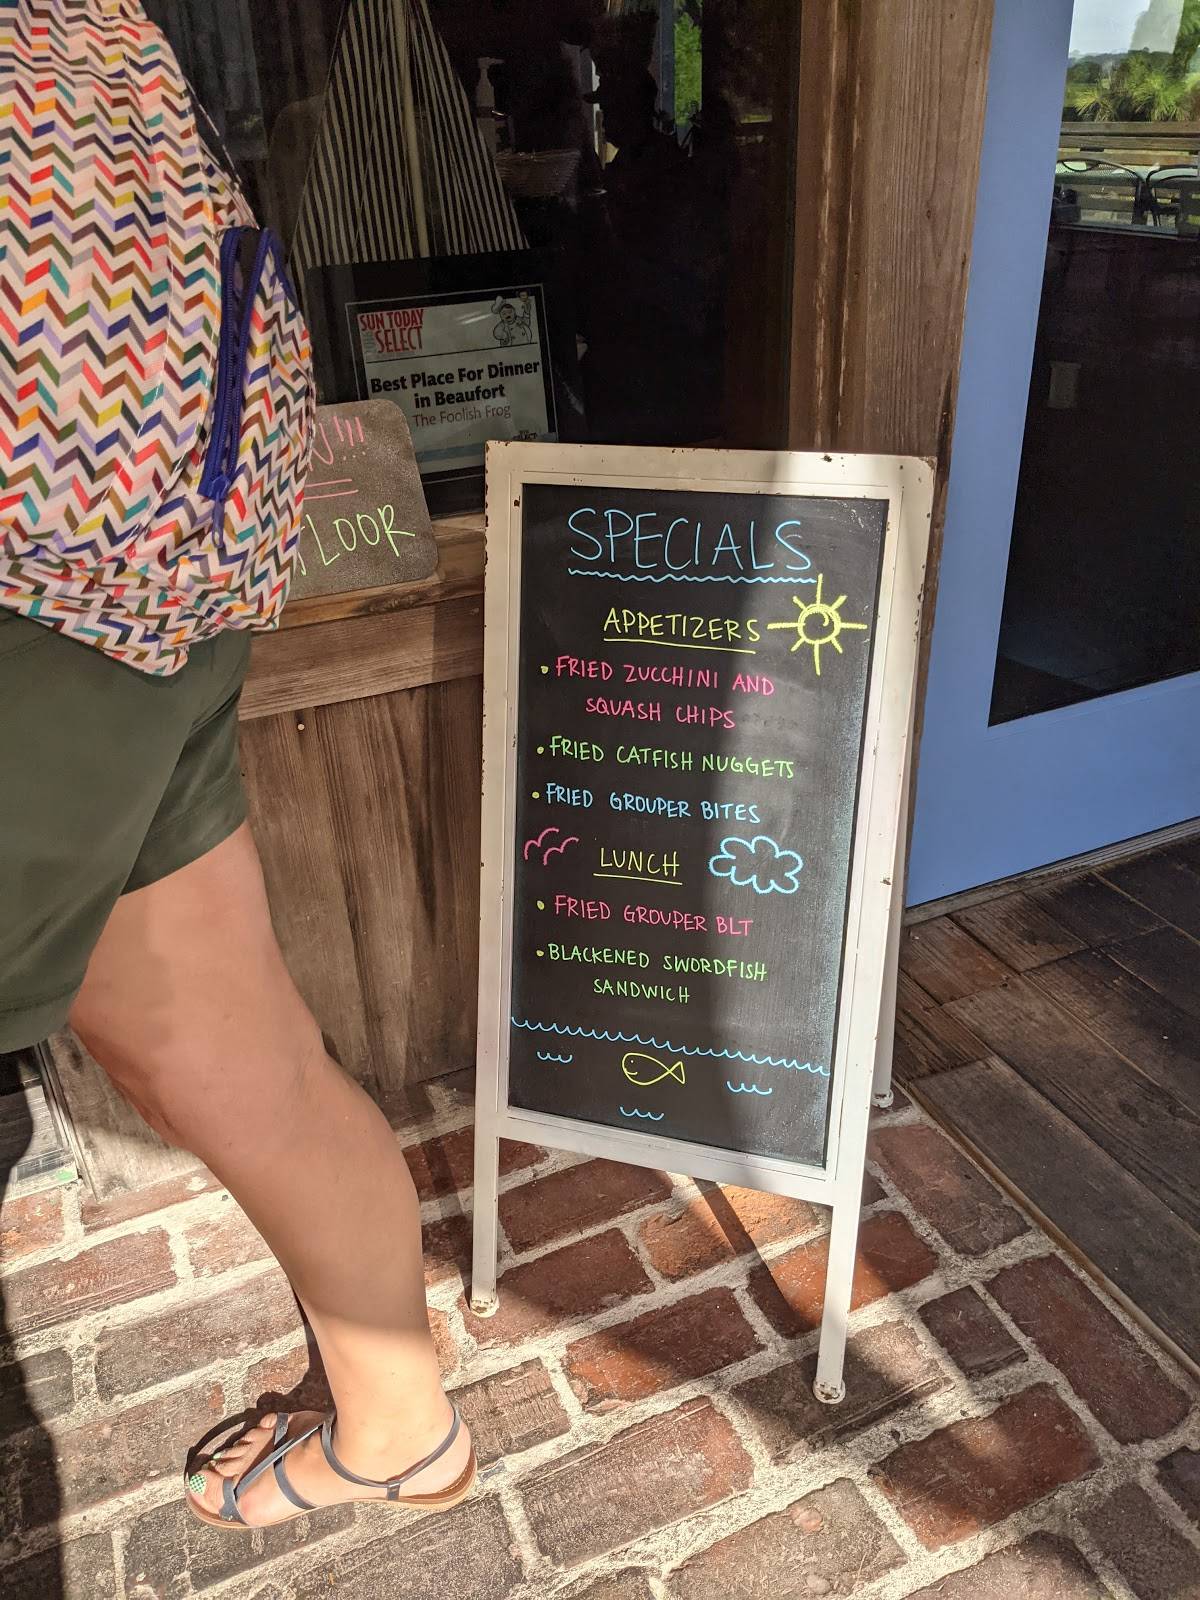 SUN TODAY
SELECT
Best Place For Dinner
in Beaufort
The Foolish Frog
!!!
FLOOR
SPECIALS
APPETIZERS
• FRIED ZUCCHINI AND
SQUASH CHIPS
• FRIED CATFISH NUGGETS
• FRIED GROUPER BITES
LUNCH
• FRIED GROUPER BLT
• BLACKENED SWORDFISH
SANDWICH